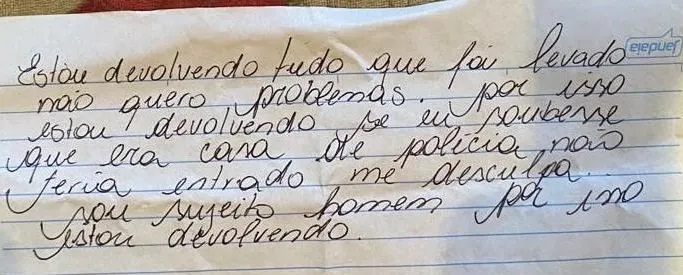 Estou devolvendo tudo que foi levado
não quero problemas. por isso
estou devolvendo se eu soubesse
que era casa de polícia não
teria entrado me desculpa...
sou sujeito homem por isso
estou devolvendo.
Jandaia